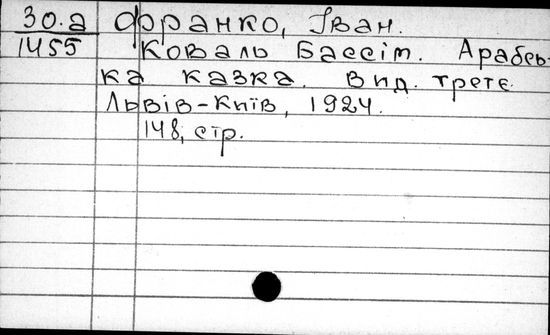 30.a Франко, Іван.
1455 Коваль Бассім. Арабсь-
ка казка. Вид. третє.
Львів-Київ, 1924.
148, стр.